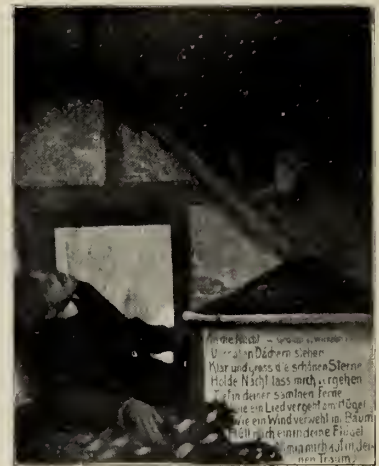 Dächern stehen
Klar und gross die schönen Sterne
Holde Nacht lass mich vergehen
in deiner samtnen Ferne
wie ein Lied vergeht am Hügel
Wie ein Wind verweht im Baum
Hüll mich ein in deine Flügel
mich auf in Dei-
nen Traum